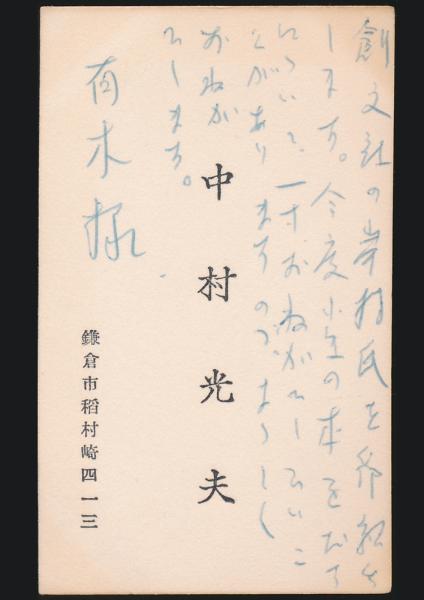 創文社の岸村氏を御紹介
します。今度小生の本をだす
について、一寸おねがひしたいこ
とがありますのでよろしく
おねが
ひします。
中村光夫
有木様
鎌倉市稲村崎四一三